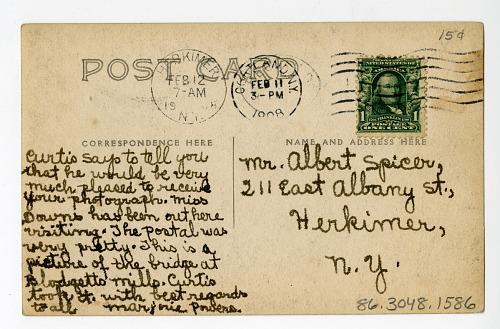 15¢
POST CARD
HERKIMER
FEB 12
7-AM
19 8
N.Y.
CORTLAND, N.Y.
FEB 11
3-PM
1908
1
1
ONE CENT
CORRESPONDENCE HERE
NAME AND ADDRESS HERE
Curtis says to tell you
that he would be very
much pleased to receive
your photograph. Miss
Downs has been out here
visiting. The postal was
very pretty. This is a
picture of the bridge at
Blodgetts mills. Curtis
took it. with best regards
to all marjorie Powers.
Mr. Albert Spicer,
211 East Albany St.,
Herkimer,
N.Y.
86.3048.1586